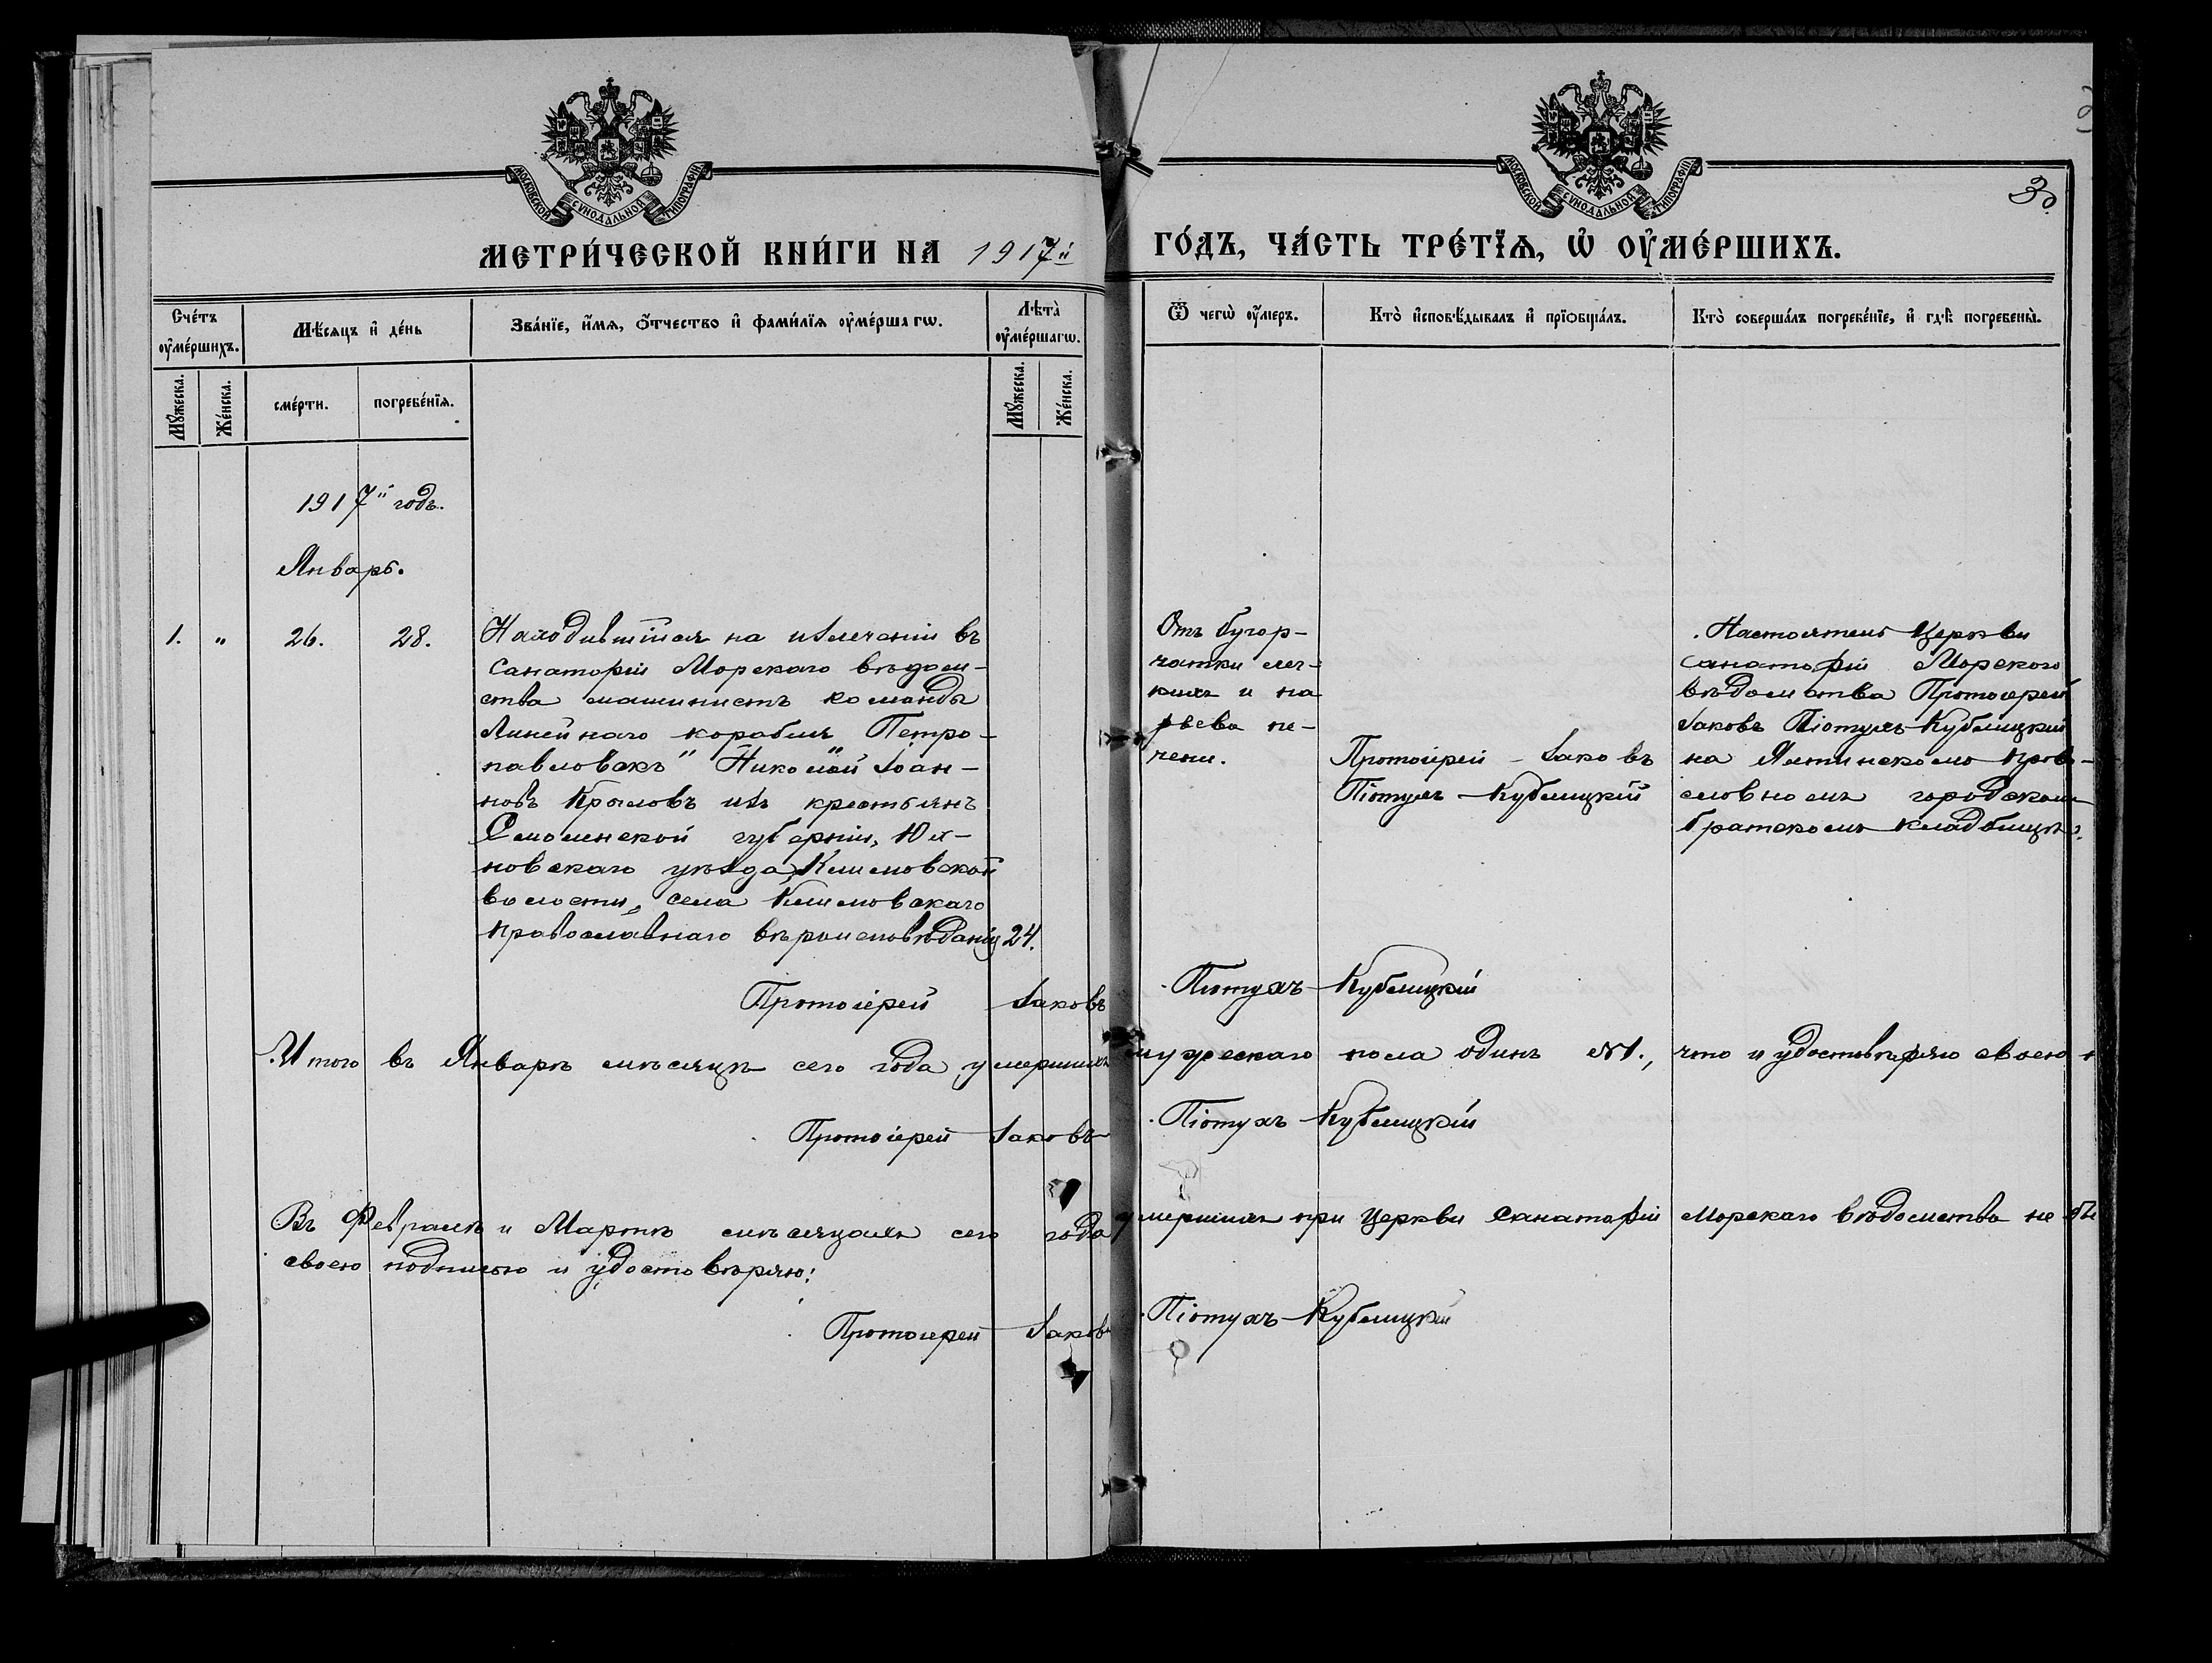 МОСКОВСКОЙ СѴНОДАЛЬНОЙ ТИПОГРАФІИ
МОСКОВСКОЙ СѴНОДАЛЬНОЙ ТИПОГРАФІИ
30.
МЕТРИ́ЧЕСКОЙ КНИ́ГИ НА 1917й ГО́ДЪ, ЧА́СТЬ ТРЕ́ТЇѦ, Ѡ҆ ОУ҆МЕ́РШИХЪ.
Сче́тъ оу҆ме́ршихъ.
Мѣ́сяцъ и҆ де́нь
Зва́нїе, и҆́мя, ѻ҆́тчество и҆ фами́лїя оу҆ме́ршагѡ.
Лѣ́та̀ оу҆ме́ршагѡ.
Ѿ чегѡ̀ оу҆́меръ.
Кто̀ и҆сповѣ́дывалъ и҆ прїѡбща́лъ.
Кто̀ соверша́лъ погребе́нїе, и҆ гдѣ̀ погребены̀.
Мꙋ́жеска.
Же́нска.
сме́рти.
погребе́нїя.
Мꙋ́жеска.
Же́нска.
1917й годъ.
Январь.
1. " 26. 28.
Находившійся на излеченіи въ
Санаторіи Морского вѣдом-
ства машинистъ команды
Линейнаго корабля „Петро-
павловскъ" Николай Іоан-
новъ Крыловъ изъ крестьянъ
Смоленской губерніи, Юх-
новскаго уѣзда, Климовской
волости, села Климовскаго
православнаго вѣроисповѣданія
24.
Отъ бугор-
чатки лег-
кихъ и на
рыва пе-
чени.
Протоіерей Іаковъ
Піотухъ-Кублицкій
Настоятель Церкви
Санаторіи Морского
вѣдомства Протоіерей
Іаковъ Піотухъ-Кублицкій
на Ялтинскомъ
городскомъ
братскомъ кладбищѣ.
Протоіерей Іаковъ Піотухъ-Кублицкій
Итого въ Январѣ мѣсяцѣ сего года умершихъ мужескаго пола одинъ №1., что и удостовѣряю своею
Протоіерей Іаковъ Піотухъ-Кублицкій
Въ Февралѣ и Мартѣ мѣсяцахъ сего года умершихъ при Церкви Санаторіи Морского вѣдомства не бы
своею подписью и удостовѣряю:
Протоіерей Іаковъ Піотухъ-Кублицкій